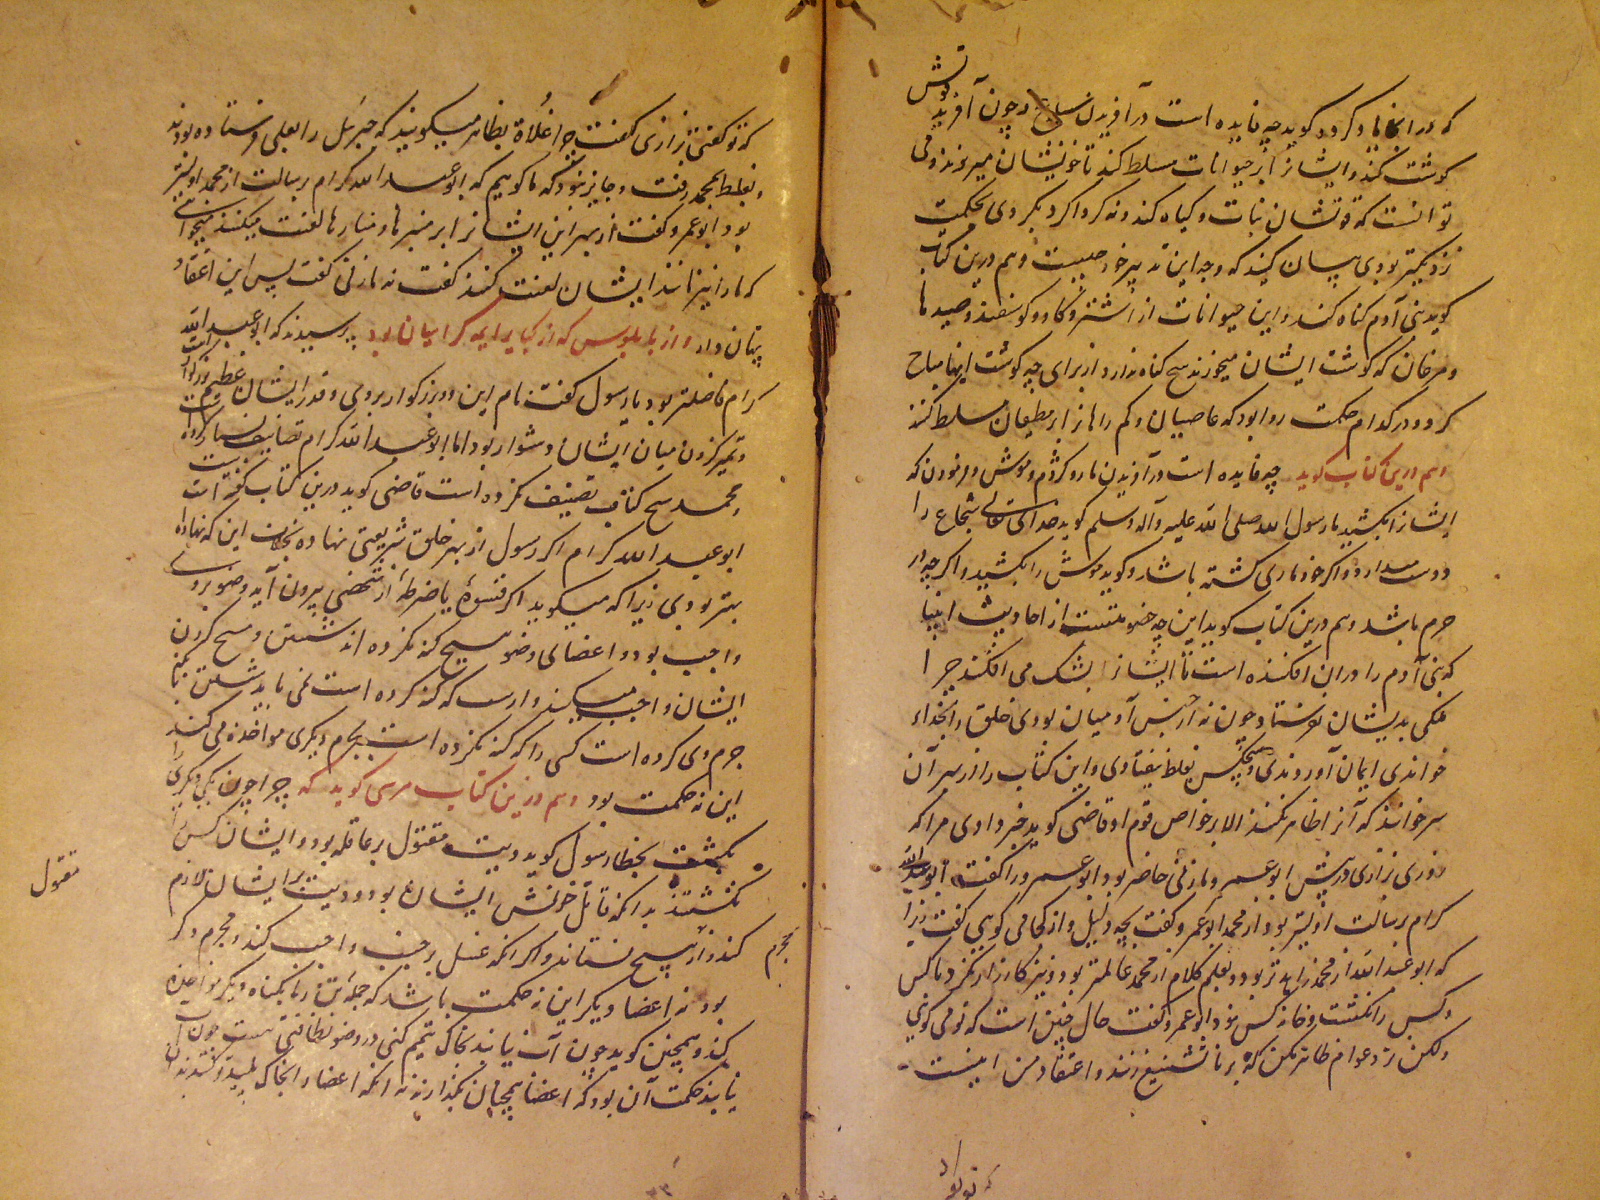 که در اینجا یاد کرد و گوید چه فایده است در آفریدن سباع و چون آفرید قوتش
گوشت کند و ایشانرا بر حیوانات مسلط کند تا خونشان میریزند و می
توانست که قوتشان نبات و گیاه کند و نه کرد اگر دیگر دی بحکمت
نزدیکتر بودی بیان کنید که وجه این نه بیرحمیست و هم درین کتاب
گوید بنی آدم گناه کند و این حیوانات از اشتر و گاو و گوسفند و صیدها
و مرغان که گوشت ایشان میخورند هیچ گناه ندارد از برای چه گوشت اینها مباح
کرد و در کدام حکمت روا بود که عاصیان و کم راهانرا بر مطیعان مسلط کند
و هم درین کتاب گوید چه فایده است در آفریدن مار و کژدم و موش و فرمودن که
ایشانرا بکشید با رسول الله صلی الله علیه وآله وسلم گوید خدای تعالی شجاع را
دوست میدارد و اگر خود ماری کشته باشد و گوید موش را بکشید و اگر چه در
حرم باشد و هم درین کتاب گوید این چه خصومتست از احادیث انبیا
که بنی آدم را در آن افکنده است تا ایشانرا بشک می افکند چرا
ملکی بدیشان نفرستاد چون نه از جنس آدمیان بودی خلق را بخدا
خواندی ایمان آوردندی و هیچکس بغلط نیفتادی و این کتاب را از بهر آن
سر خوانند که آنرا ظاهر نکنند الا بر خواص قوم او قاضی گوید خبر دادی مرا که
روزی نزاری در پیش ابو عمرو مازنی حاضر بود ابو عمرو را گفت ابو عبدالله
کرام برسالت اولیتر بود از محمد ابو عمرو گفت بچه دلیل و از کجا می گویی گفت زیرا
که ابو عبدالله از محمد زاهدتر بود و بعلم کلام از محمد عالمتر بود و نیز کارزار نکرد با کس
و کس را نکشت و خانه کس نسوخت ابو عمرو گفت حال چنین است که تو می گوئی
ولکن نزد عوام ظاهر مکن که بر ما تشنیع زنند و اعتقاد من اینست
که تو
که تو گفتی نزاری گفت چرا غلاة بظاهر میگویند که جبرئیل را بعلی فرستاده بودند
و بغلط بمحمد رفت و جایز نبود که ما گوییم که ابو عبدالله کرام برسالت از محمد اولیتر
بود ابو عمرو گفت از بهر این ایشانرا بر منبرها و منارها لعنت میکنند میخواهی
که ما را نیز مانند ایشان لعنت کنند گفت نه مازنی گفت پس این اعتقاد
پنهان دار و از که از کبار ایمه کرامیان بود پرسیدند که ابو عبدالله
کرام فاضلتر بود یا رسول گفت نام این دو بزرگوار بردی و قدر ایشان عظیم بزرگوار است
و تمیز کردن میان ایشان دشوار بود اما ابو عبدالله کرام تصانیف بسیار کرده است
و محمد هیچ کتاب تصنیف نکرده است قاضی گوید درین کتاب گفته است
ابو عبدالله کرام اگر رسول از بهر خلق شریعتی نهاده بخلاف این که نهاده
بهتر بودی زیرا که میگوید اگر فسوة یا ضرطة از شخصی بیرون آید وضو بروی
واجب بود و اعضای وضو هیچ گنه نکرده اند شستن و مسح کردن
ایشان واجب میکند و آنست که گنه کرده است نمی باید شستن با
جرم وی کرده است کسی را که گنه نکرده است بجرم دیگری مواخذه می کند
این نه حکمت بود و هم درین کتاب سر می گوید که چرا چون یکی دیگری را
بکشت بخطا رسول گوید دیت مقتول بر عاقله بود و ایشان کس را
نکشتند بدانکه قاتل خویش ایشان بود و دیت بر ایشان لازم
کند و از هیچ نستاند و اگر آنکه غسل بر جنب واجب کند و مجرم ذکر
بود نه اعضاء دیگر این نه حکمت باشد که جمله تن را بگناه دیگر مواخذه
کند و همچنین گوید چون آب نیابند بخاک تیمم کنی در وضو نظافتی هست چون آب
نیابند حکمت آن بود که اعضا همچنان بگذارند نه آنکه اعضا را بخاک پلید کنند
مقتول
مجرم